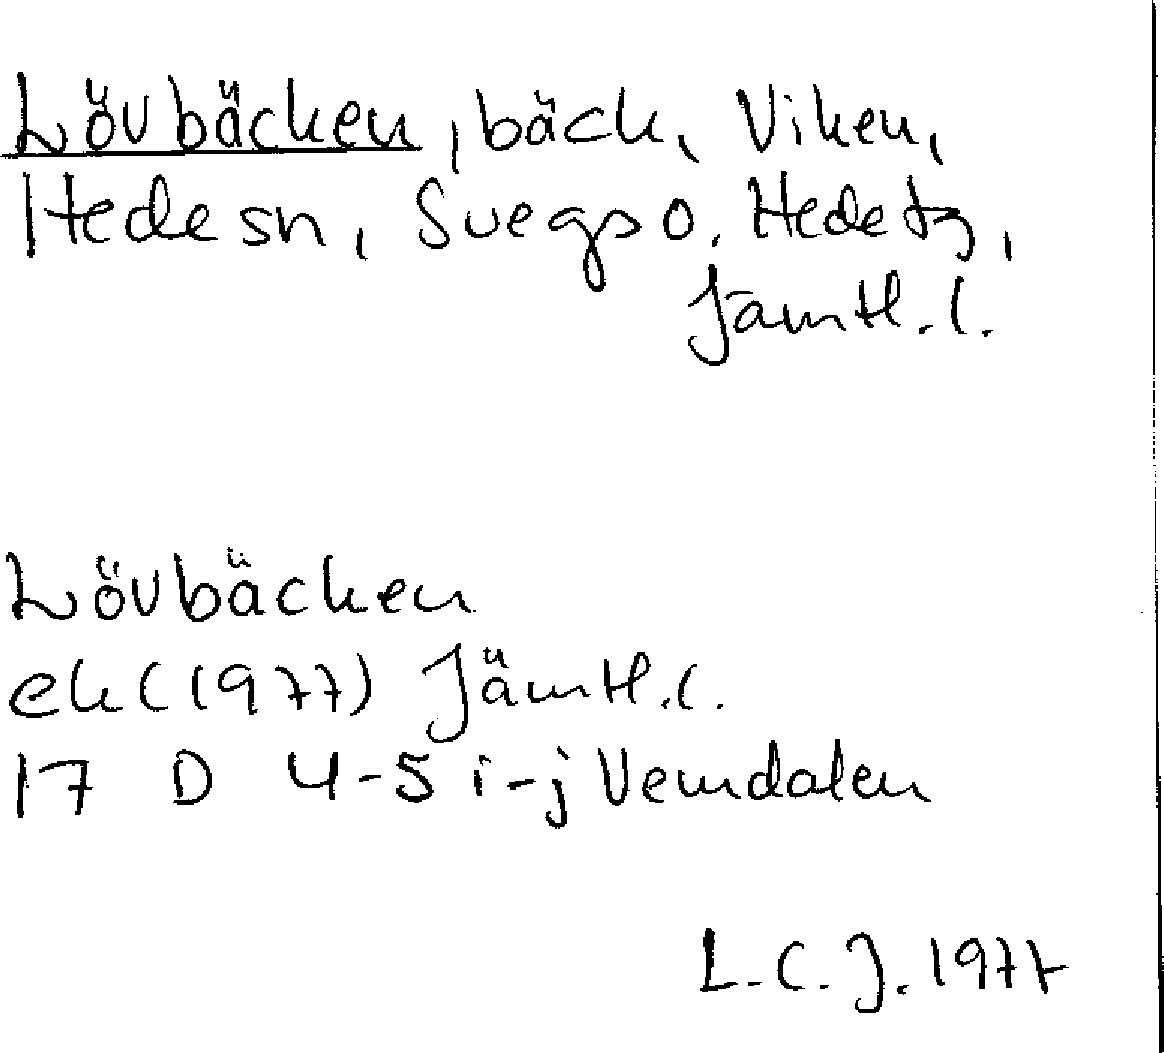 Lövbäcken, bäck, Viken,
Hede sn, Svegs o. Hede tg,
Jämtl. l.
Lövbäcken
ek (1977) Jämtl. l.
17 D 4-5 i-j Vemdalen
L. C. J. 1977